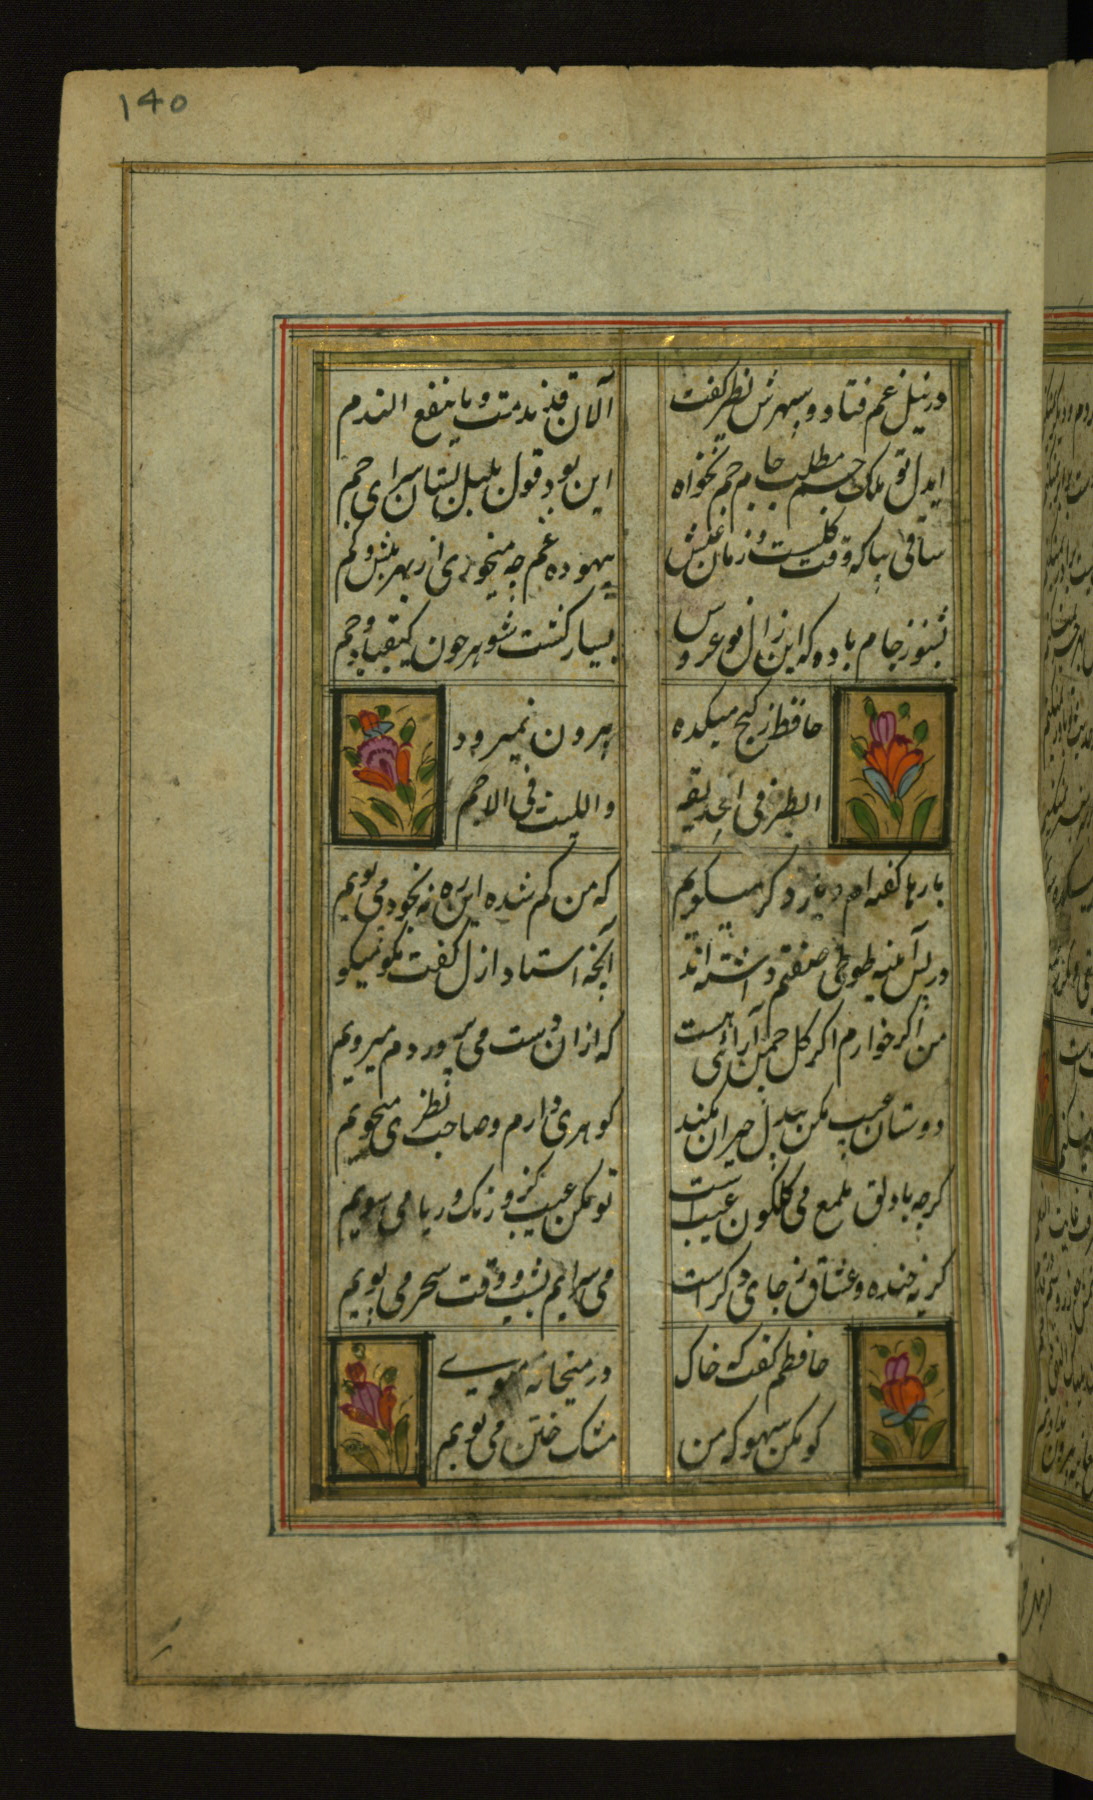 ۱۴۵
در نیل غم فتاد و سپهرش نظر کفت
الآن قد ندمت و ما ینفع الندم
ایدل تو ملک جم مطلب جام جم نخواه
این بود قول بلبل بستان سرای جم
ساقی بیا که وقت کلست و زمان عیش
بیهوده غم چه میخوری از بهر بیش و کم
بشنو ز جام باده که این زال نو عروس
بسیار کشت شوهر چون کیقباد و جم
حافظ ز کنج میکده
بیرون نمیرود
الطیر فی الحدیقه
واللیث فی الاجم
بارها کفته ام و بار دکر میکویم
که من کم شده این ره نه بخود می پویم
در پس آینه طوطی صفتم داشته اند
آنچه استاد ازل کفت بکو میکو
من اکر خوارم اکر کل چمن آرائی هست
که از ان دست می پروردم میرویم
دوستان عیب من بیدل حیران مکنید
کوهری دارم و صاحب نظری میجویم
کرچه با دلق ملمع می کلکون عیب است
تو مکن عیب کزو رنک و ریا می شویم
کریه خنده و عشاق ز جای دکر است
می سرایم بشب و وقت سحر می پویم
حافظم کفت که خاک
در میخانه مبوی
کو مکن سهو که من
مشک ختن می بویم